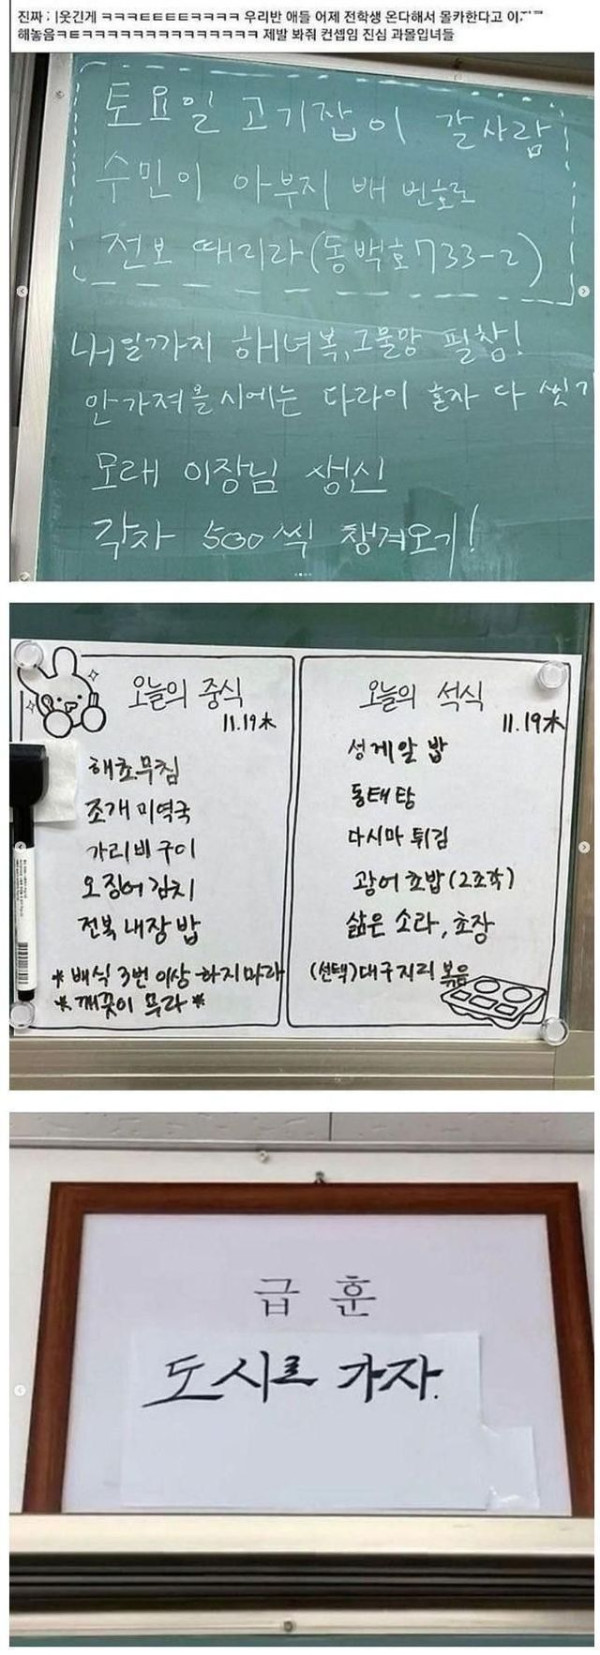 웃긴게 ㅋㅋㅋㅌㅌㅌㅌㅋㅋㅋㅋ 우리반 애들 어제 전학생 온다해서 몰카한다고
해놓음ㅋㅌㅋㅋㅋㅋㅋㅋㅋㅋㅋㅋㅋㅋㅋㅋㅋ 제발 봐줘 컨셉임 진심 과몰입녀들
토요일 고기잡이 갈사람
수민이 아부지 배 번호로
전보 때리라(동백호733-2)
내일까지 해녀복,그물망 필참!
안가져올시에는 다라이 혼자 다 씻기
모레 이장님 생신
각자 500씩 챙겨오기!
오늘의 중식
11.19木
해초무침
조개 미역국
가리비 구이
오징어 김치
전복 내장 밥
*배식 3번 이상 하지마라
*깨끗이 무라*
오늘의 석식
11.19木
성게알 밥
동태탕
다시마 튀김
광어 초밥(2조각)
삶은 소라,초장
(선택)대구지리 볶음
급훈
도시로 가자.